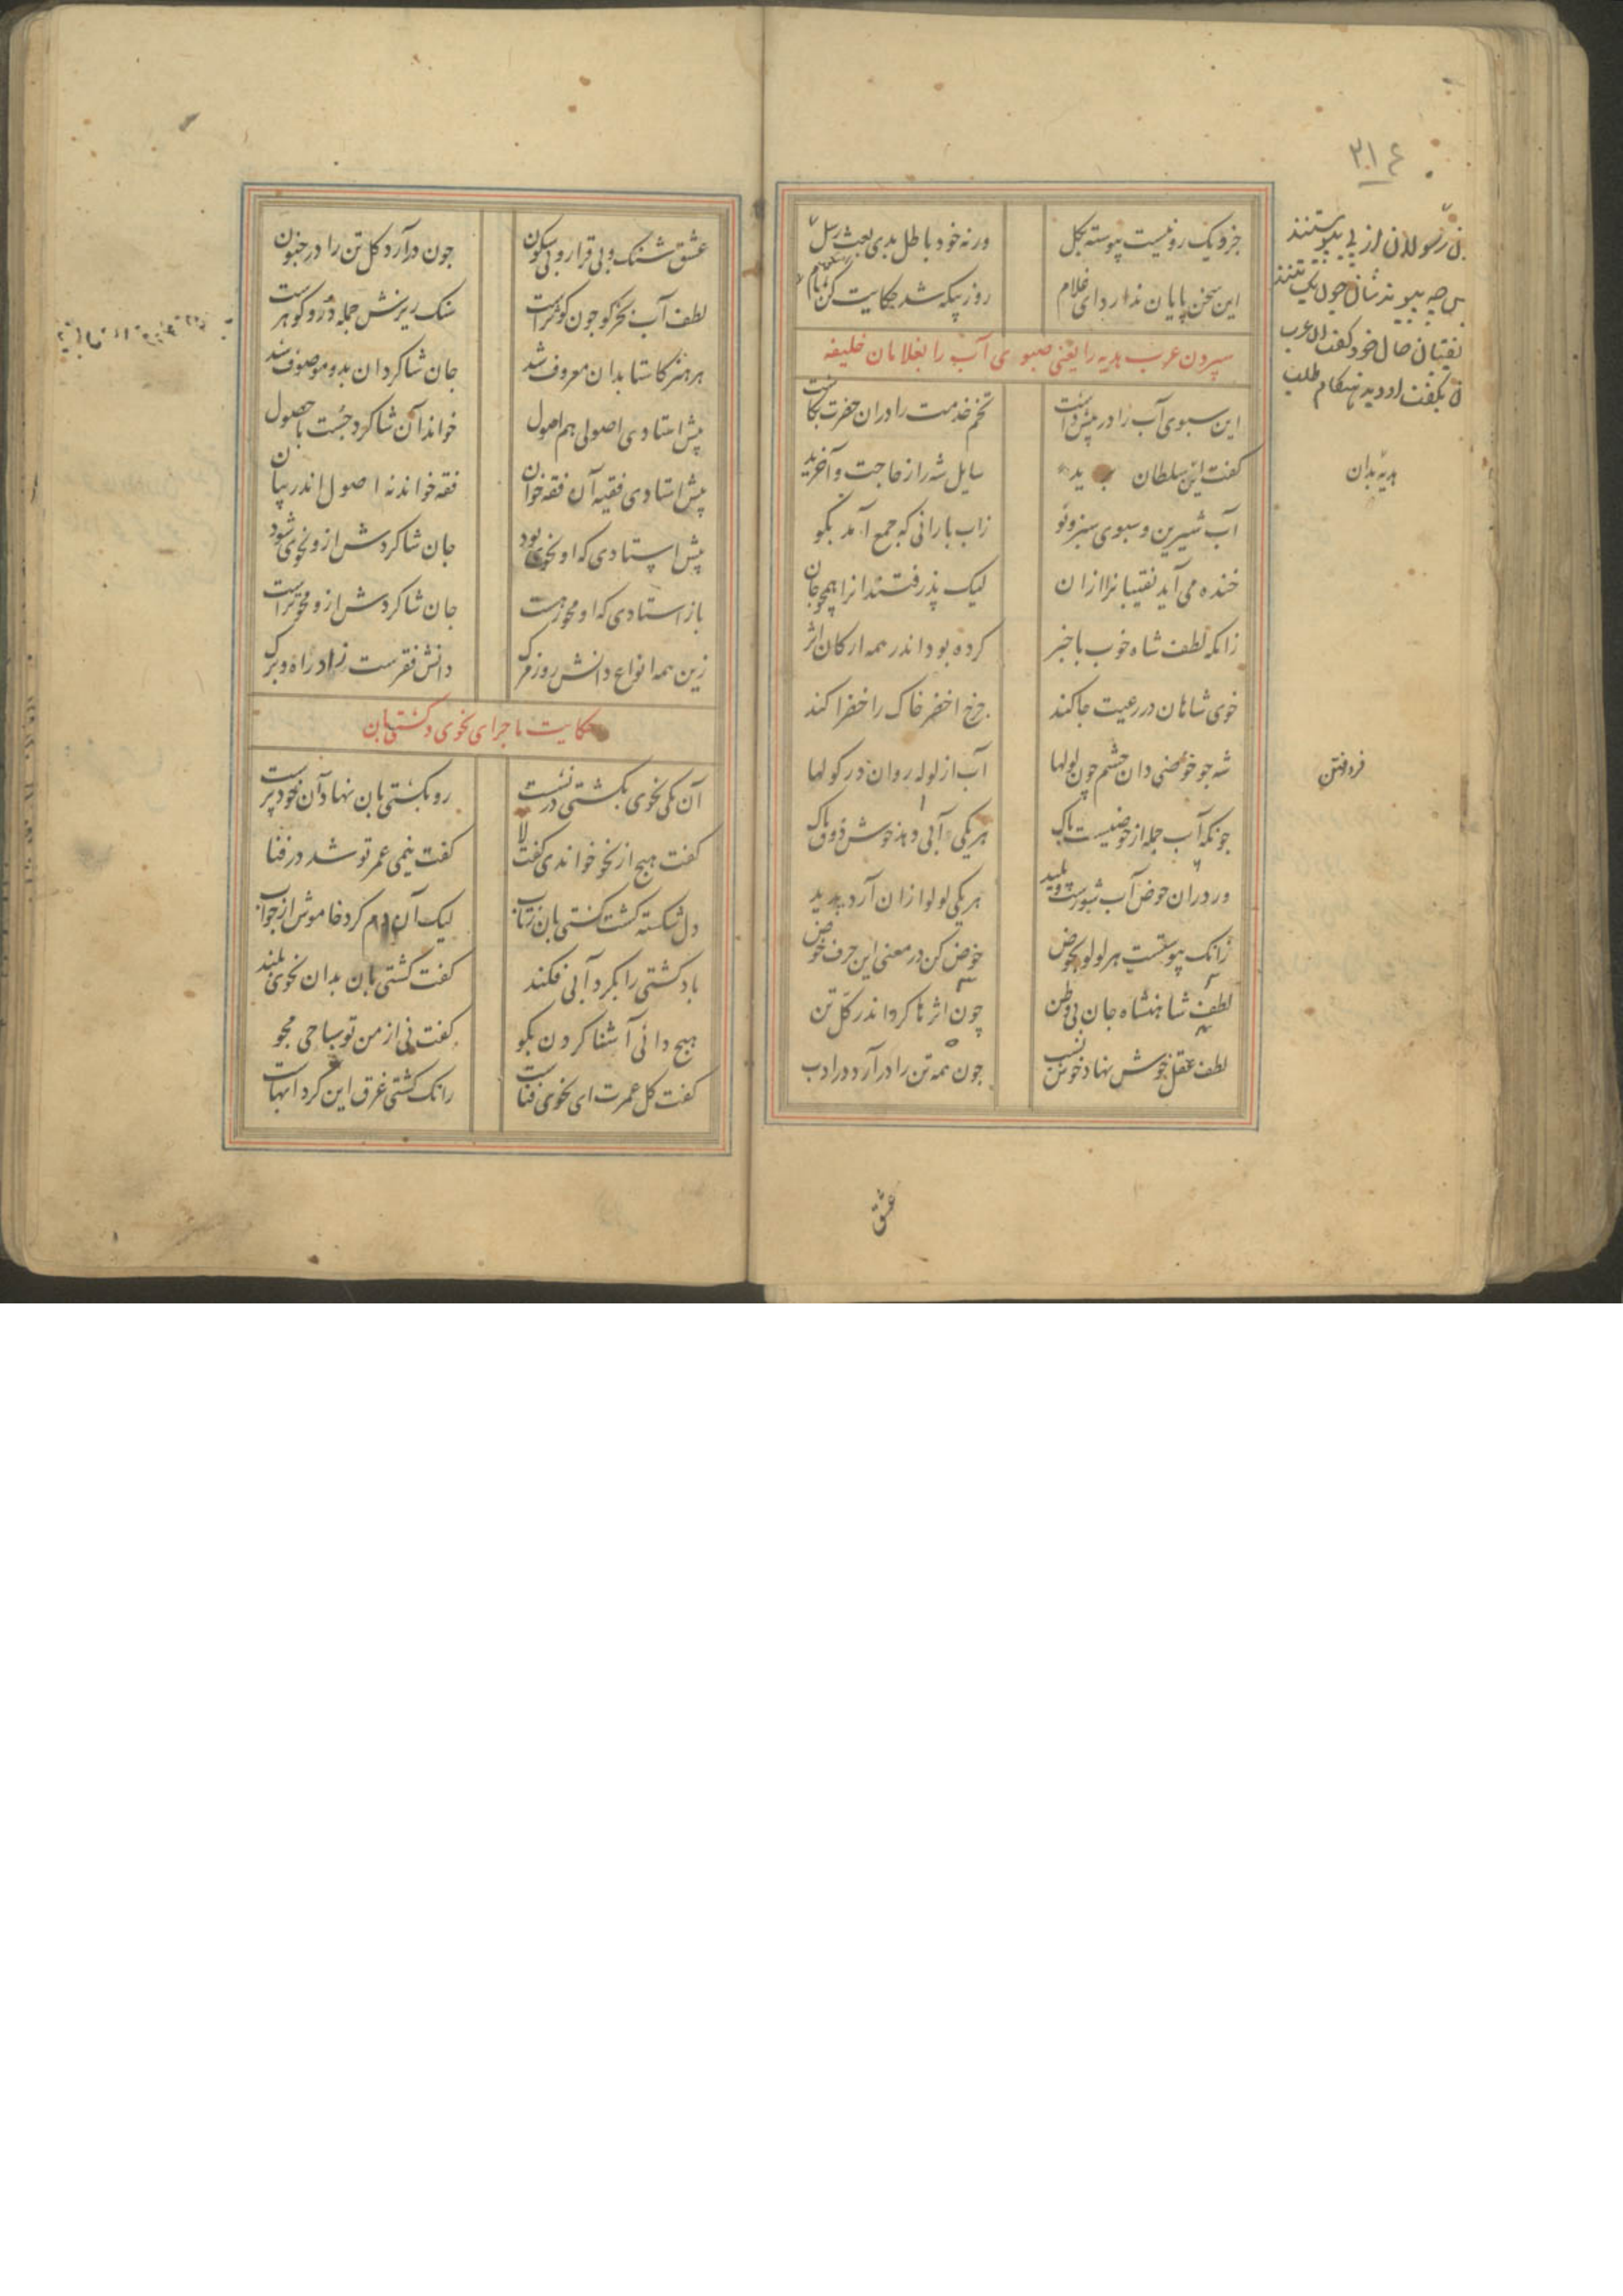 ۳۱٤
جزو یک رو نیست پیوسته بکل
ورنه خود باطل بدی بعث رسل
این سخن پایان ندارد ای غلام
روز بیکه شد حکایت کن تمام
سپردن عرب هدیه را یعنی صبوی آب را بغلامان خلیفه
این سبوی آب را در پیش داشت
تخم خدمت را دران حضرت بکاشت
کفت این سلطان برید
سایل شه را ز حاجت وآخرید
آب شیرین و سبوی سبز و نو
زاب بارانی که جمع آمد بکو
خنده می آید نقیبانرا ازان
لیک پذرفتند انرا همچو جان
زانکه لطف شاه خوب باخبر
کرده بود اندر همه ارکان اثر
خوی شاهان در رعیت جا کند
چرخ اخضر خاک را خضرا کند
شه جو حوضی دان حشم چون لولها
آب از لوله روان در کولها
چونکه آب جمله از حوضیست پاک
هر یکی آبی دهد خوش ذوق ناک
ور دران حوض آب شورست و پلید
هر یکی لولوا زان آرد پدید
زانک پیوستست هر لوله بحوض
خوض کن در معنی این حرف خوض
لطف شاهنشاه جان بی وطن
چون اثرها کرد اندر کل تن
لطف عقل خوش نهاد خوش نسب
جون همه تن را در آرد در ادب
هدیه بدان
عشق
عشق شنک و بی قرار و بی سکون
جون درآرد کل تن را در جنون
لطف آب بحر کو جون کوثرست
سنک ریزش جمله در و کوهرست
هر هنر کاستا بدان معروف شد
جان شاکردان بدو موصوف شد
پیش استادی اصولی هم اصول
خواند آن شاکرد جست با حصول
پیش استادی فقیه آن فقه خوان
فقه خواند نه اصول اندر بیان
پیش استادی که او نحوی بود
جان شاکردش ازو نحوی شود
باز استادی که او محو رهست
جان شاکردش ازو محو شهست
زین همه انواع دانش روز مرک
دانش فقرست زاد راه و برک
حکایت ماجرای نحوی و کشتیبان
آن یکی نحوی بکشتی در نشست
رو بکشتی بان نهاد آن خود پرست
کفت هیج از نحو خواندی کفت لا
کفت نیمی عمر تو شد در فنا
دل شکسته کشت کشتی بان ز تاب
لیک آن دم کرد خاموش از جواب
باد کشتی را بکردابی فکند
کفت کشتی بان بدان نحوی بلند
هیج دانی آشنا کردن بکو
کفت نی از من تو سباحی مجو
کفت کل عمرت ای نحوی فناست
زانک کشتی غرق این کردابهاست